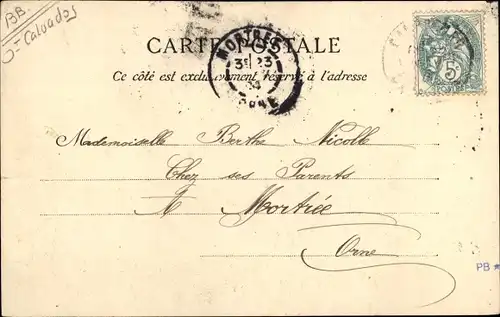 BB.
Calvados
CARTE POSTALE
Ce côté est exclusivement réservé à l'adresse
MORTRÉE
23
ORNE
5
Mademoiselle Berthe Nicolle
Chez ses Parents
À Mortrée
Orne
PB *